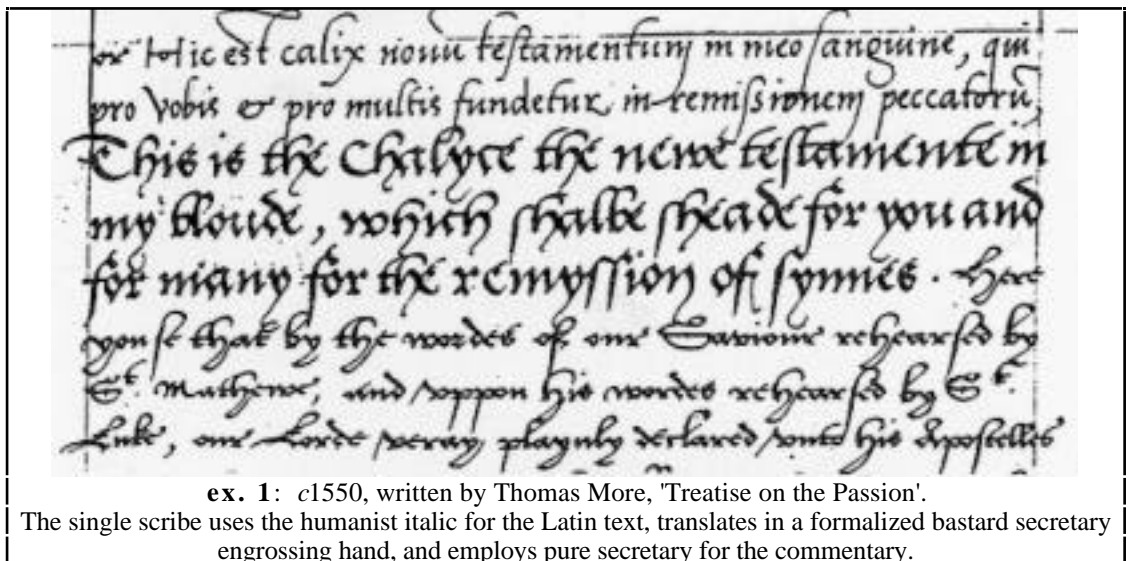 or Hic est calix novū testamentum in meo sanguine, qui
pro vobis & pro multis fundetur in remissionem peccatorū
This is the Chalyce the newe testamente in
my bloude, which shalbe sheade for you and
for many for the remyssion of synnes. Here
you se that by the wordes of our Saviour rehearsed by
St. Mathewe, and vppon his wordes rehearsed by St.
Luke, our Lorde veray playnly declared vnto his Apostelles
ex. 1: c1550, written by Thomas More, 'Treatise on the Passion'.
The single scribe uses the humanist italic for the Latin text, translates in a formalized bastard secretary
engrossing hand, and employs pure secretary for the commentary.